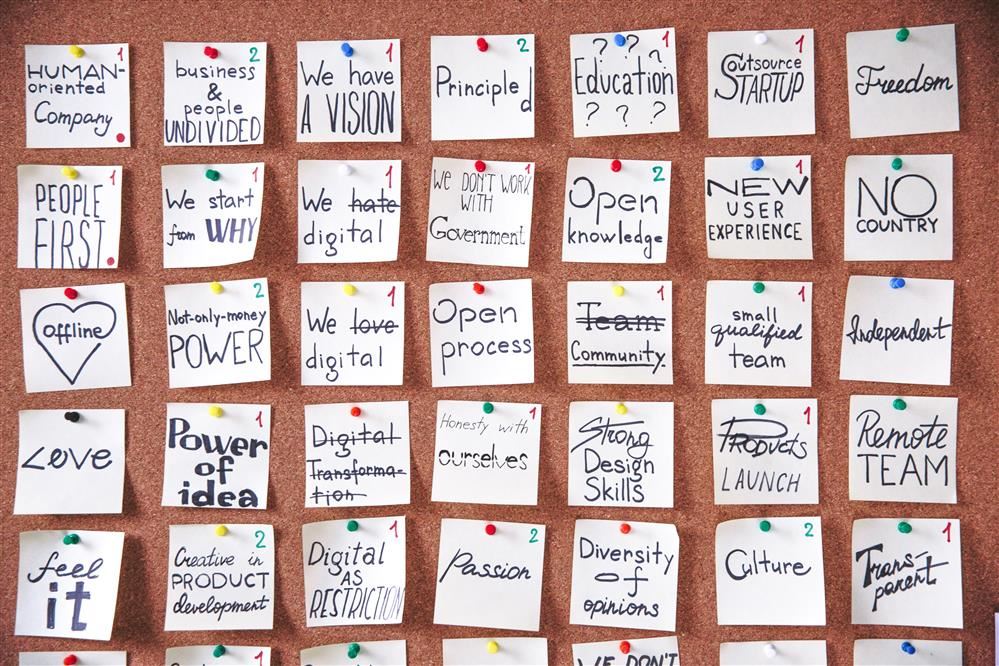 HUMAN-
oriented
Company
1
business
&
people
UNDIVIDED
2
We have
A VISION
1
Principled
2
? ? ?
Education
? ? ?
1
Outsource
STARTUP
1
Freedom
PEOPLE
FIRST.
1
We start
from WHY
1
We hate
digital
1
We DON'T WORK
WITH
Government
1
Open
knowledge
2
NEW
USER
EXPERIENCE
1
NO
COUNTRY
offline
Not-only-money
POWER
2
We love
digital
1
Open
process
Team
Community
1
small
qualified
team
1
Independent
Love
Power
of
idea
1
Digital
Transforma-
tion
Honesty with
ourselves
1
Strong
Design
Skills
PRODUCTS
LAUNCH
1
Remote
TEAM
feel
it
Creative in
PRODUCT
development
2
Digital
AS
RESTRICTION
1
Passion
2
Diversity
of
opinions
Culture
2
Trans-
parent
1
1
WE DON'T